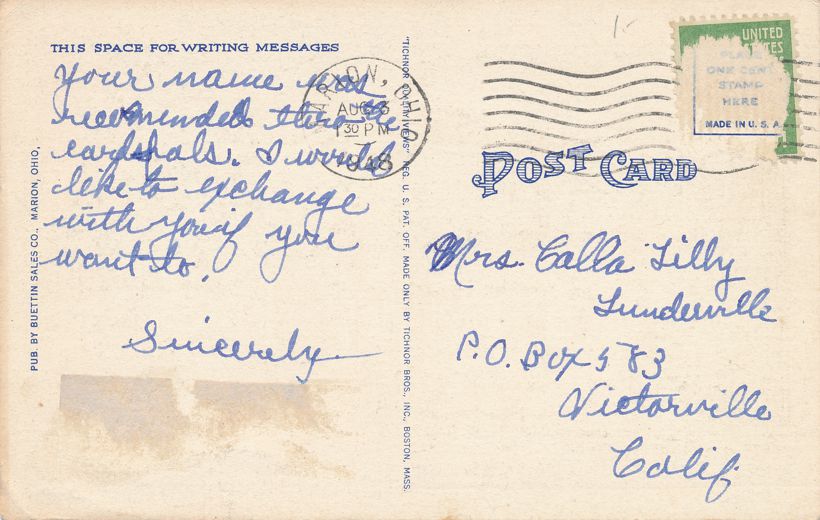 THIS SPACE FOR WRITING MESSAGES
Your name was
recomended thru the
card pals. I would
like to exchange
with you if you
want to.
Sincerely
PUB. BY BUETTIN SALES CO., MARION, OHIO.
"TICHNOR QUALITY VIEWS" REG. U. S. PAT. OFF. MADE ONLY BY TICHNOR BROS., INC., BOSTON, MASS.
MARION, OHIO
AUG 3
30 PM
1948
UNITED
PLACE
ONE CENT
STAMP
HERE
MADE IN U. S. A.
POST CARD
Mrs. Calla Lilly
Lunderville
P.O. Box 583
Victorville
Calif.